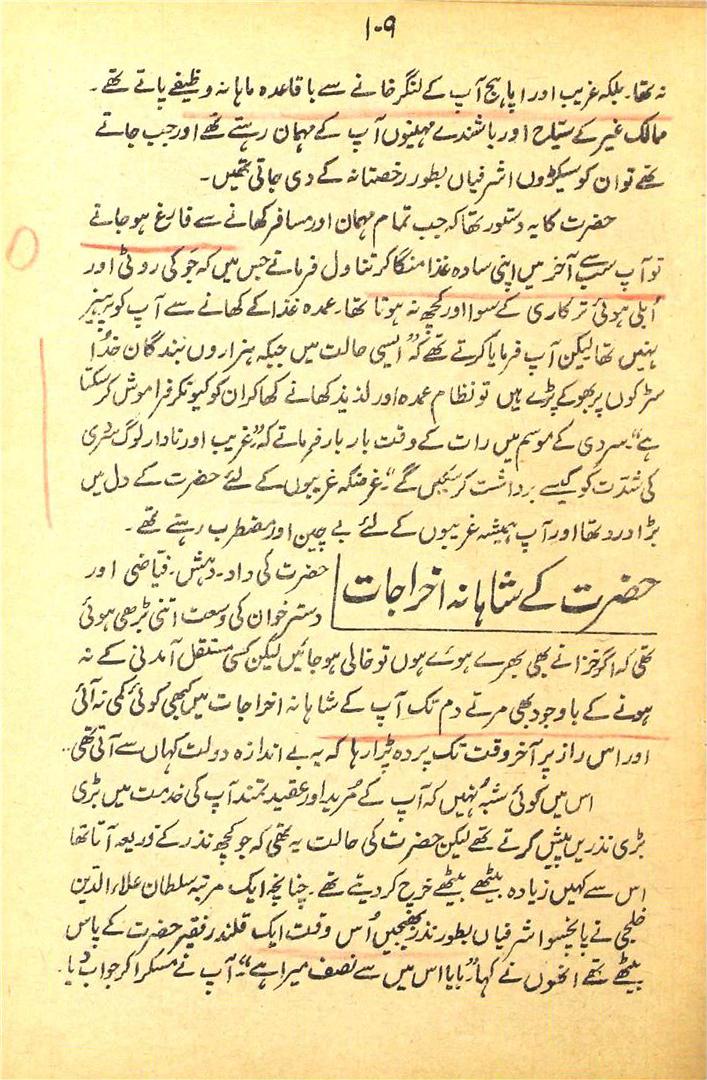 ۱۰۹
نہ تھا۔ بلکہ غریب اور اپاہج آپ کے لنگر خانے سے باقاعدہ ماہانہ وظیفے پاتے تھے۔
ممالک غیر کے سیّاح اور باشندے مہینوں آپ کے مہمان رہتے تھے اور جب جاتے
تھے تو ان کو سیکڑوں اشرفیاں بطور رخصتانہ کے دی جاتی تھیں۔
حضرت کا یہ دستور تھا کہ جب تمام مہمان اور مسافر کھانے سے فارغ ہو جاتے
تو آپ سب سے آخر میں اپنی سادہ غذا منگا کر تناول فرماتے جس میں کہ جَو کی روٹی اور
اُبلی ہوئی ترکاری کے سوا اور کچھ نہ ہوتا تھا۔ عمدہ غذا کے کھانے سے آپ کو پرہیز
نہیں تھا لیکن آپ فرمایا کرتے تھے کہ ”ایسی حالت میں جبکہ ہزاروں بندگان خدا
سڑکوں پر بھوکے پڑے ہیں تو نظام عمدہ اور لذیذ کھانے کھا کر ان کو کیونکر فراموش کر سکتا
ہے“۔ سردی کے موسم میں رات کے وقت بار بار فرماتے کہ ”غریب اور نادار لوگ سردی
کی شدّت کو کیسے برداشت کر سکیں گے“۔ غرضکہ غریبوں کے لئے حضرت کے دل میں
بڑا درد تھا اور آپ ہمیشہ غریبوں کے لئے بے چین اور مضطرب رہتے تھے۔
حضرت کے شاہانہ اخراجات
حضرت کی داد۔ دہش۔ فیّاضی اور
دسترخوان کی وسعت اتنی بڑھی ہوئی
تھی کہ اگر خزانے بھی بھرے ہوئے ہوں تو خالی ہو جائیں لیکن کسی مستقل آمدنی کے نہ
ہونے کے باوجود بھی مرتے دم تک آپ کے شاہانہ اخراجات میں کبھی کوئی کمی نہ آئی
اور اس راز پر آخر وقت تک پردہ پڑا رہا کہ یہ بے اندازہ دولت کہاں سے آتی تھی۔۔
اس میں کوئی شبہ نہیں کہ آپ کے مُرید اور عقیدتمند آپ کی خدمت میں بڑی
بڑی نذریں پیش کرتے تھے لیکن حضرت کی حالت یہ تھی کہ جو کچھ نذر کے ذریعہ آتا تھا
اس سے کہیں زیادہ بیٹھے بیٹھے خرچ کر دیتے تھے۔ چنانچہ ایک مرتبہ سلطان علاء الدین
خلجی نے پانچسو اشرفیاں بطور نذر بھیجیں اُس وقت ایک قلندر فقیر حضرت کے پاس
بیٹھے تھے انھوں نے کہا ”بابا اس میں سے نصف میرا ہے“۔ آپ نے مسکرا کر جواب دیا۔